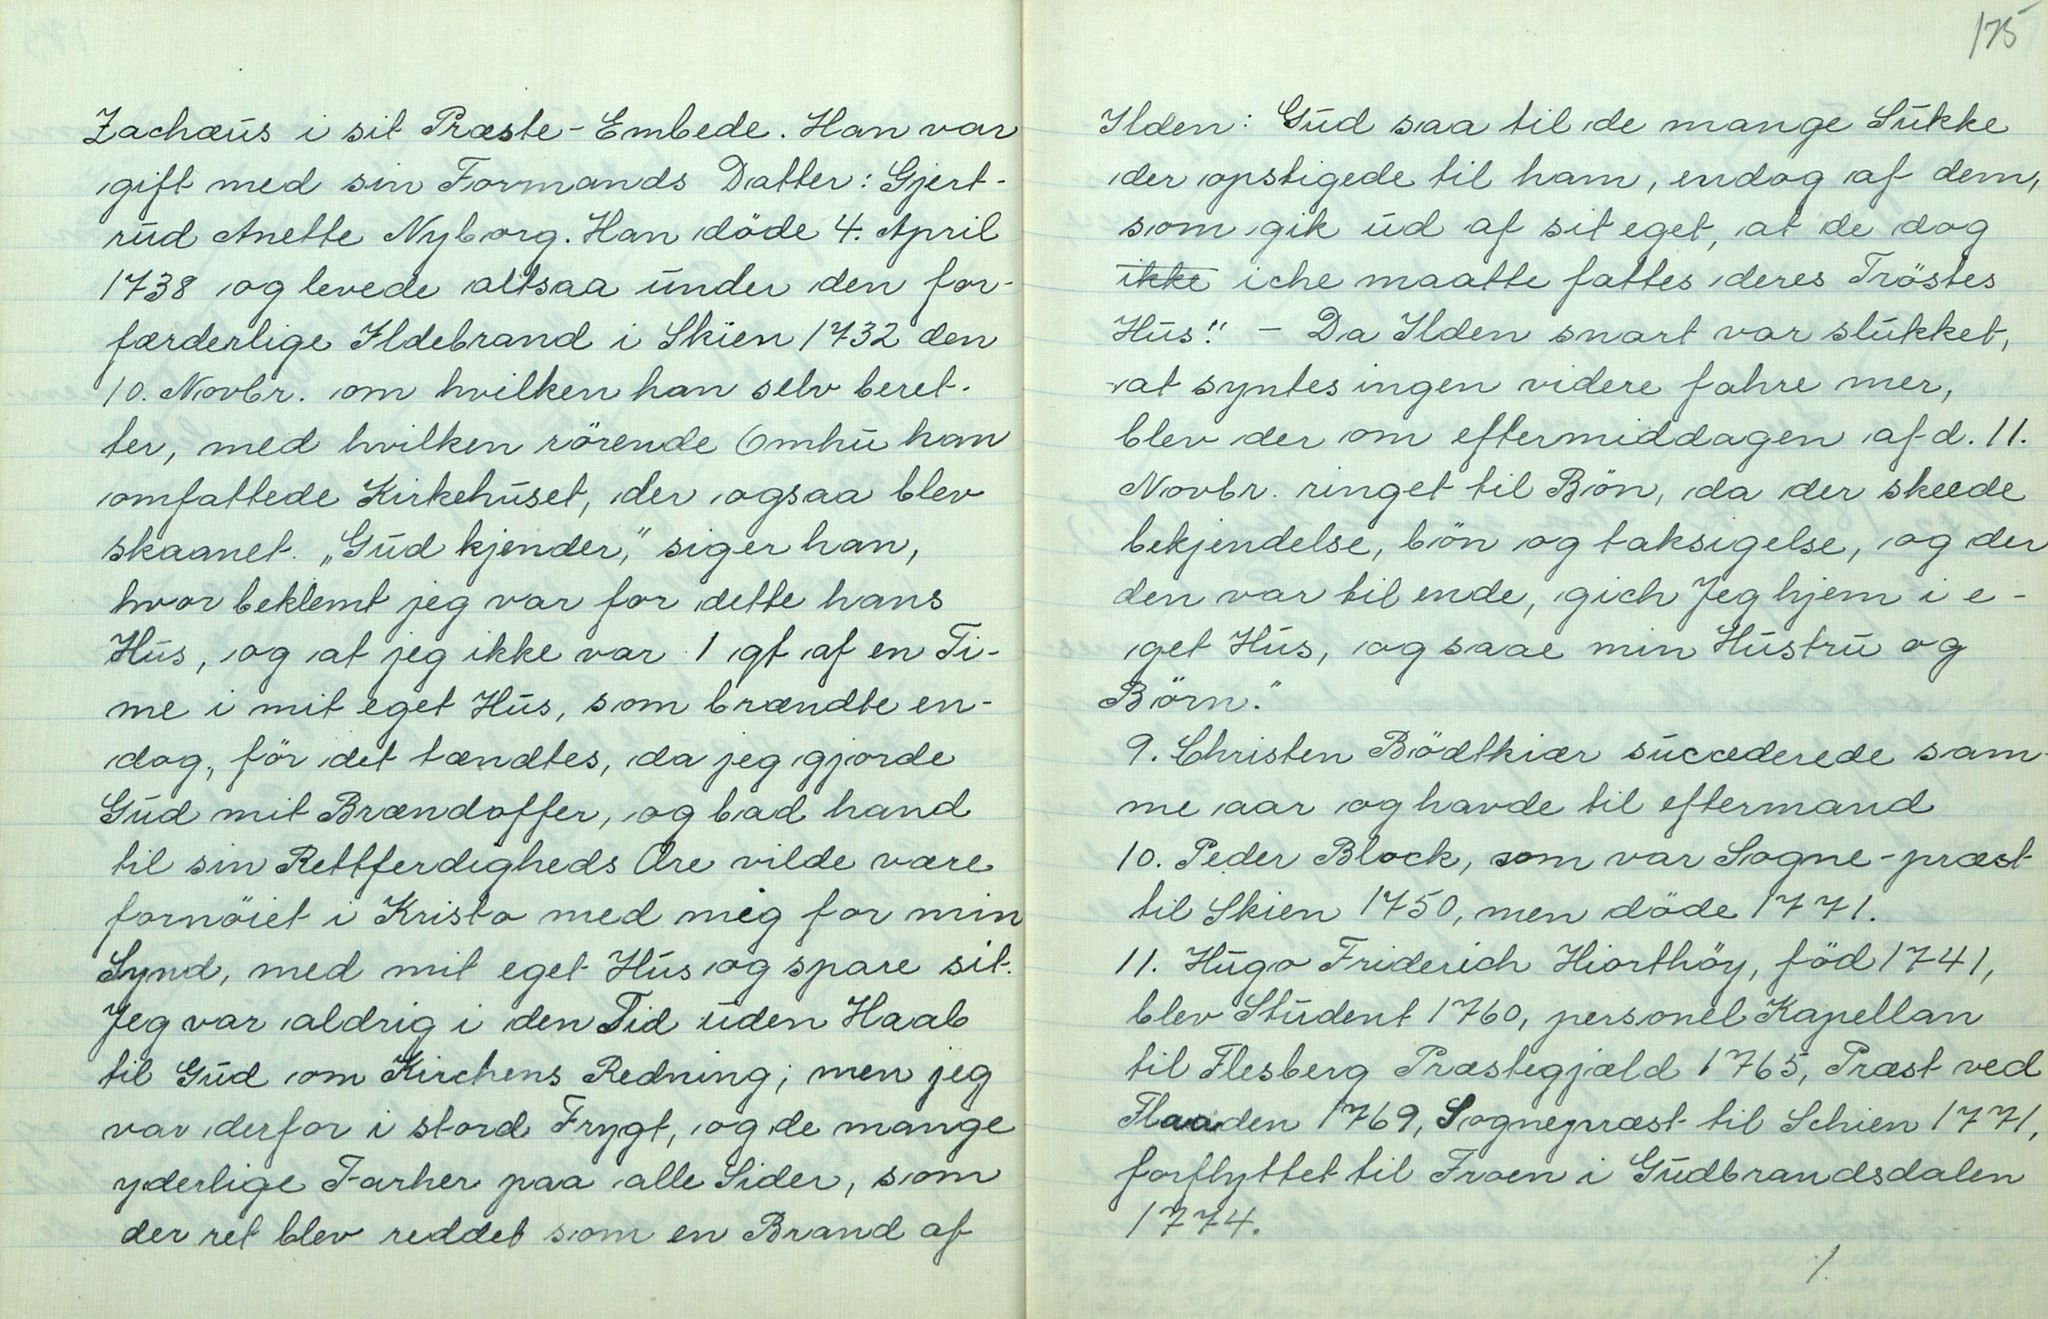 Zachæus i sit Præste-Embede. Han var
gift med sin Formands Datter: Gjert-
rud Anette Nyborg. Han döde 4. April
1738 og levede altsaa under den for-
færderlige Ildebrand i Skien 1732 den
10. Novbr. om hvilken han selv beret-
ter, med hvilken rörende Omhu han
omfattede Kirkehuset, der ogsaa blev
skaanet. „Gud kjender," siger han,
hvor beklemt jeg var for dette hans
Hus, og at jeg ikke var 1 qt af en Ti-
me i mit eget Hus, som brændte en-
dog, för det tændtes, da jeg gjorde
Gud mit Brændoffer, og bad hand
til sin Rettferdigheds Ære vilde være
fornöiet i Kristo med mig for min
Synd, med mit eget Hus og spare sit.
Jeg var aldrig i den Tid uden Haab
til Gud om Kirchens Redning; men jeg
var derfor i stord Frygt, og de mange
yderlige Farher paa alle Sider, som
der ret blev reddet som en Brand af
175
Ilden: Gud saa til de mange Sukke
der opstigede til ham, endog af dem,
som gik ud af sit eget, at de dog
ikke iche maatte fattes deres Tröstes
Hus!" - Da Ilden snart var slukket,
at syntes ingen videre fahre mer,
blev der om eftermiddagen af d. 11.
Novbr. ringet til Bön, da der skeede
bekjendelse, bön og taksigelse, og der
den var til ende, gich Jeg hjem i e-
get Hus, og saae min Hustru og
Börn."
9. Christen Bödtkiær succederede sam-
me aar og havde til eftermand
10. Peder Block, som var Sogne-præst
til Skien 1750, men döde 1771.
11. Hugo Friderich Hiorthöy, föd 1741,
blev Student 1760, personel Kapellan
til Flesberg Præstegjæld 1765, Præst ved
Flaaden 1769, Sognepræst til Schien 1771,
forflyttet til Froen i Gudbrandsdalen
1774.
1.